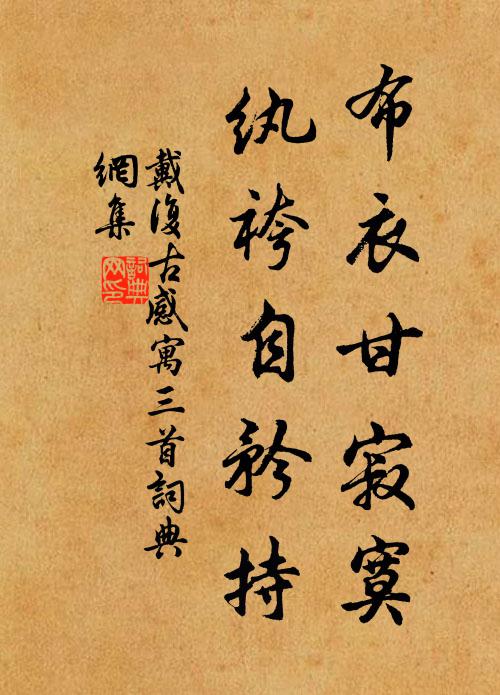 布衣甘寂寞
纨袴自矜持
戴復古感寓三首詞典
網集
詞典
网印